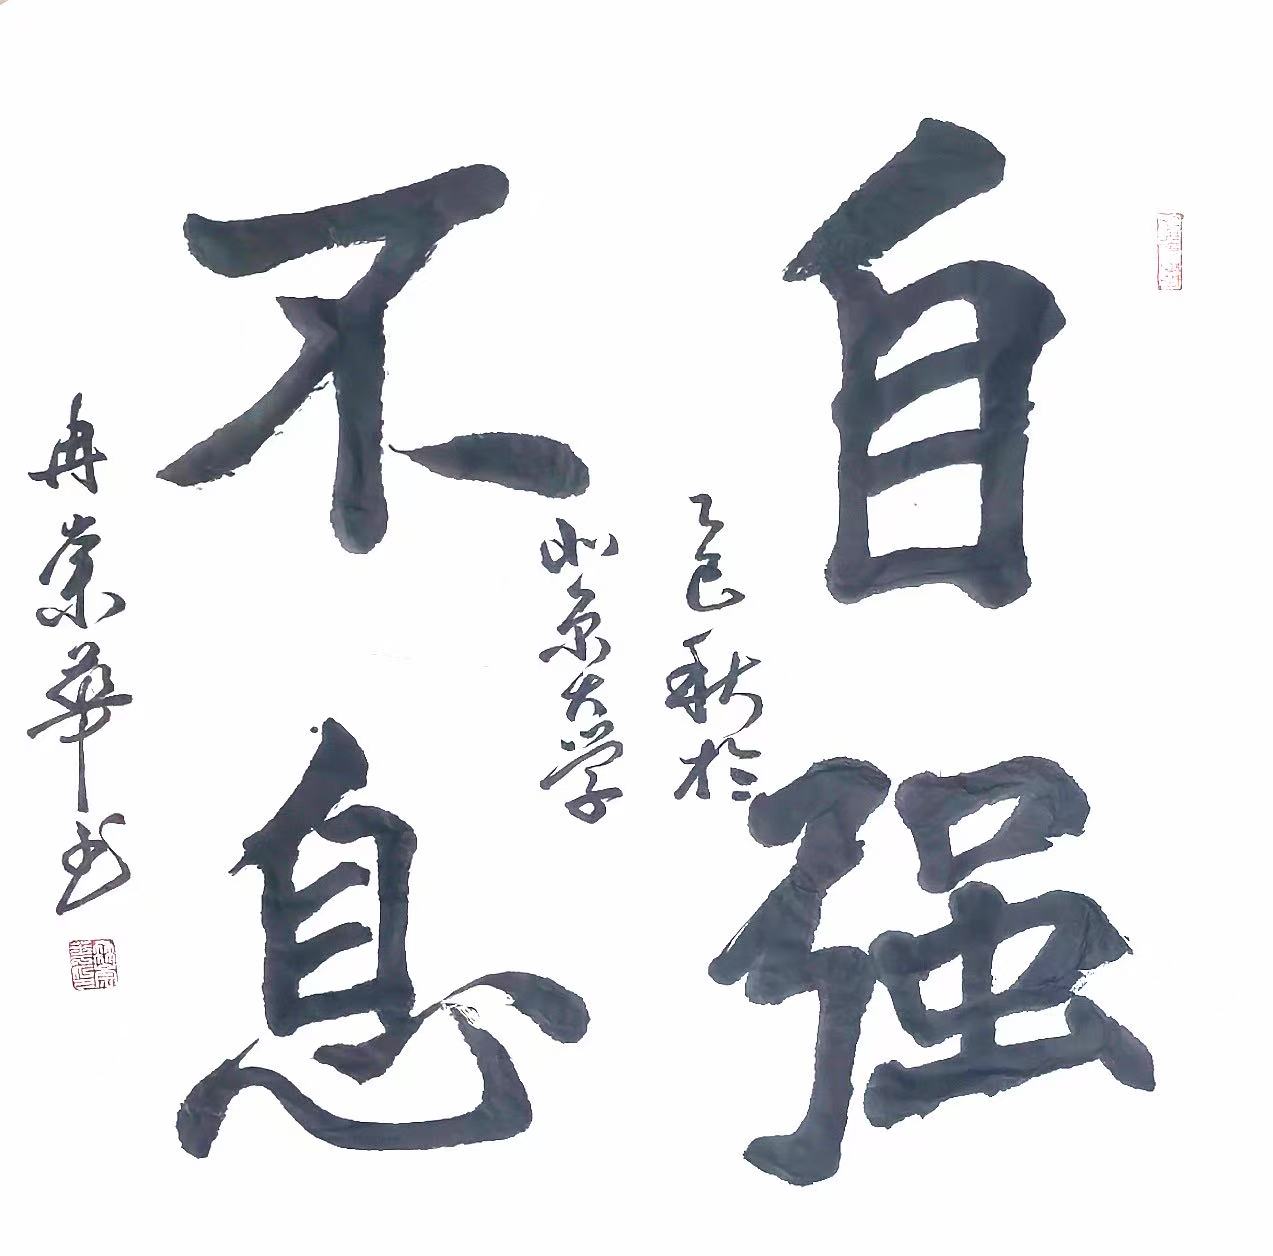 自强
不息
乙巳秋於
北京大学
冉崇华书